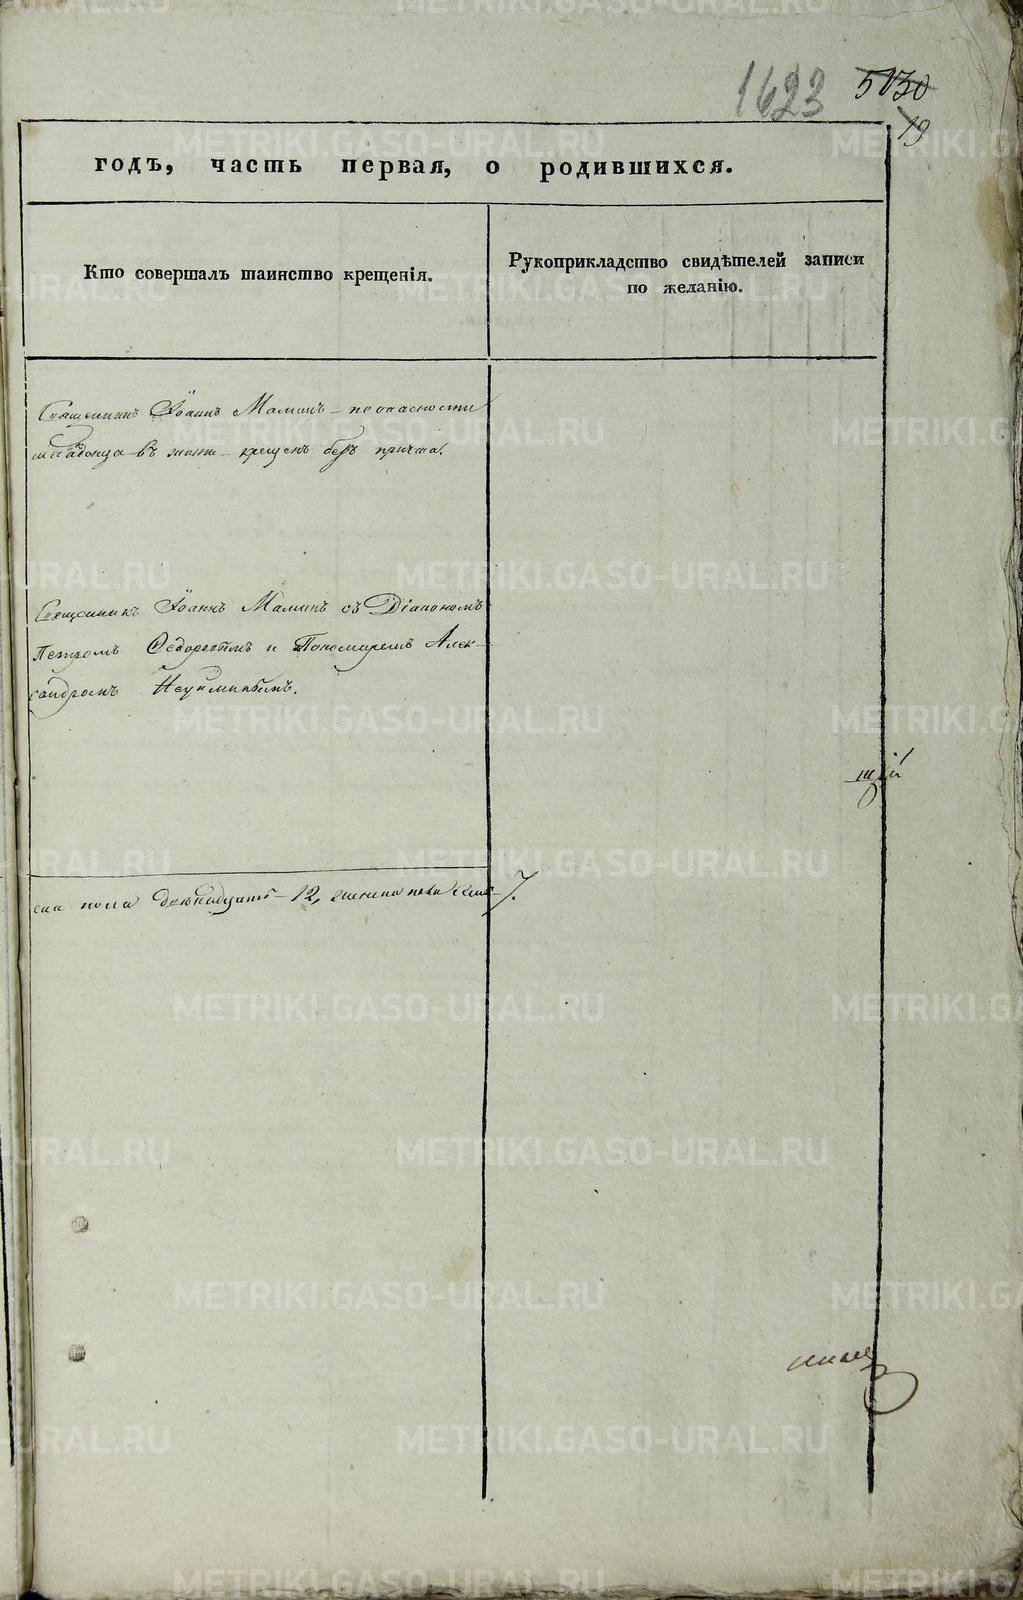 1623 5030
19
годъ, часть первая, о родившихся.
Кто совершалъ таинство крещенія.
Рукоприкладство свидѣтелей записи
по желанію.
Священникъ Іоаннъ Маминъ – по опасности
младенца въ жизни – крещенъ безъ причта.
Священникъ Іоаннъ Маминъ съ Діакономъ
Петромъ Ѳедоровымъ и Пономаремъ Алек-
сандромъ Неуйминымъ.
щій
ска пола двенадцать – 12, женска пола семь – 7.
METRIKI.GASO-URAL.RU